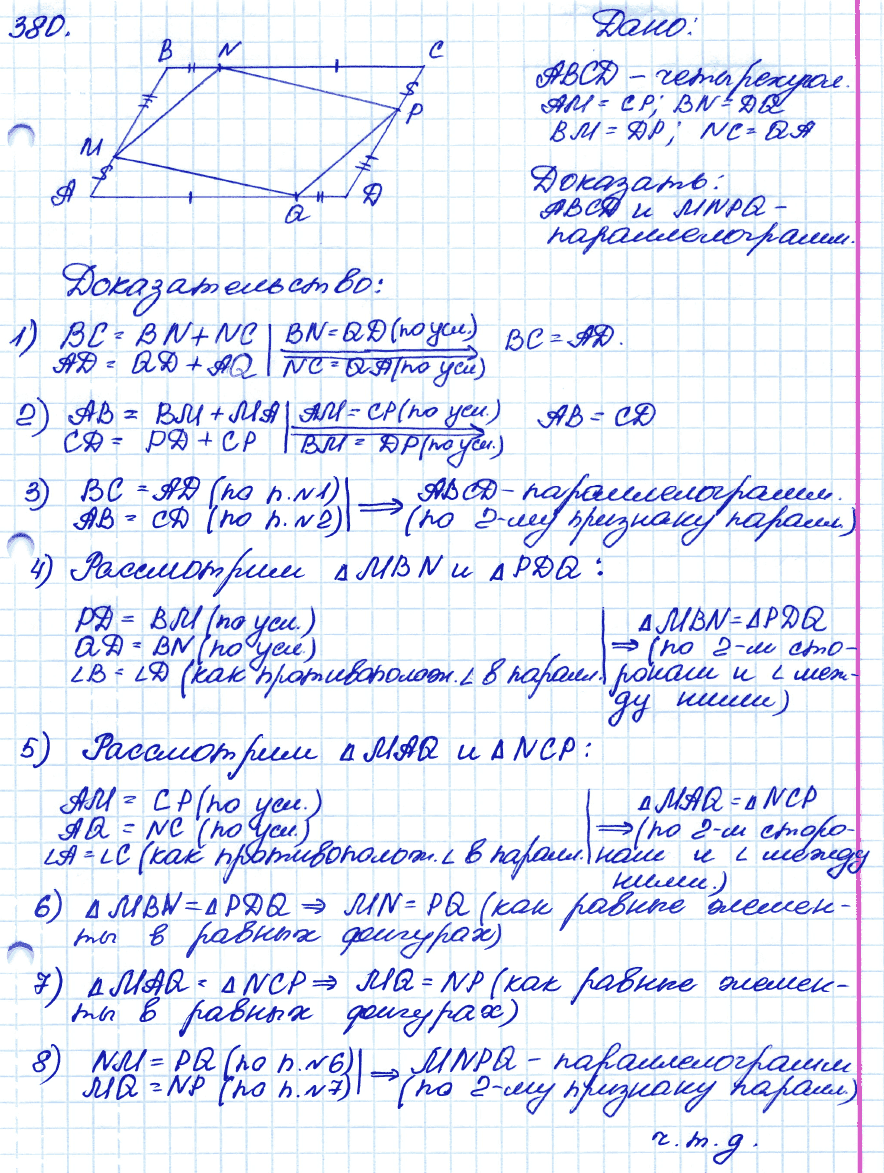 380.
B N C
P
M
A Q D
Дано:
ABCD – четырехугол.
AM = CP; BN = DQ
BM = DP; NC = QA
Доказать:
ABCD и MNPQ –
параллелограмм.
Доказательство:
1) BC = BN + NC | BN = QD (по усл.) BC = AD.
AD = QD + AQ | NC = QA (по усл)
2) AB = BM + MA | AM = CP (по усл.) AB = CD
CD = PD + CP | BM = DP (по усл.)
3) BC = AD (по п.№1) | ⇒ ABCD – параллелограмм.
AB = CD (по п.№2) | (по 2-му признаку паралл.)
4) Рассмотрим △MBN и △PDQ:
PD = BM (по усл.) | △MBN = △PDQ
QD = BN (по усл.) | ⇒ (по 2-м сто-
∠B = ∠D (как противополож. ∠ в паралл. | ронам и ∠ меж-
ду ними)
5) Рассмотрим △MAQ и △NCP:
AM = CP (по усл.) | △MAQ = △NCP
AQ = NC (по усл.) | ⇒ (по 2-м сторо-
∠A = ∠C (как противополож. ∠ в паралл. | нам и ∠ между
ними.)
6) △MBN = △PDQ ⇒ MN = PQ (как равные элемен-
ты в равных фигурах)
7) △MAQ = △NCP ⇒ MQ = NP (как равные элемен-
ты в равных фигурах)
8) NM = PQ (по п.№6) | ⇒ MNPQ – параллелограмм
MQ = NP (по п.№7) | (по 2-му признаку паралл.)
ч.т.д.